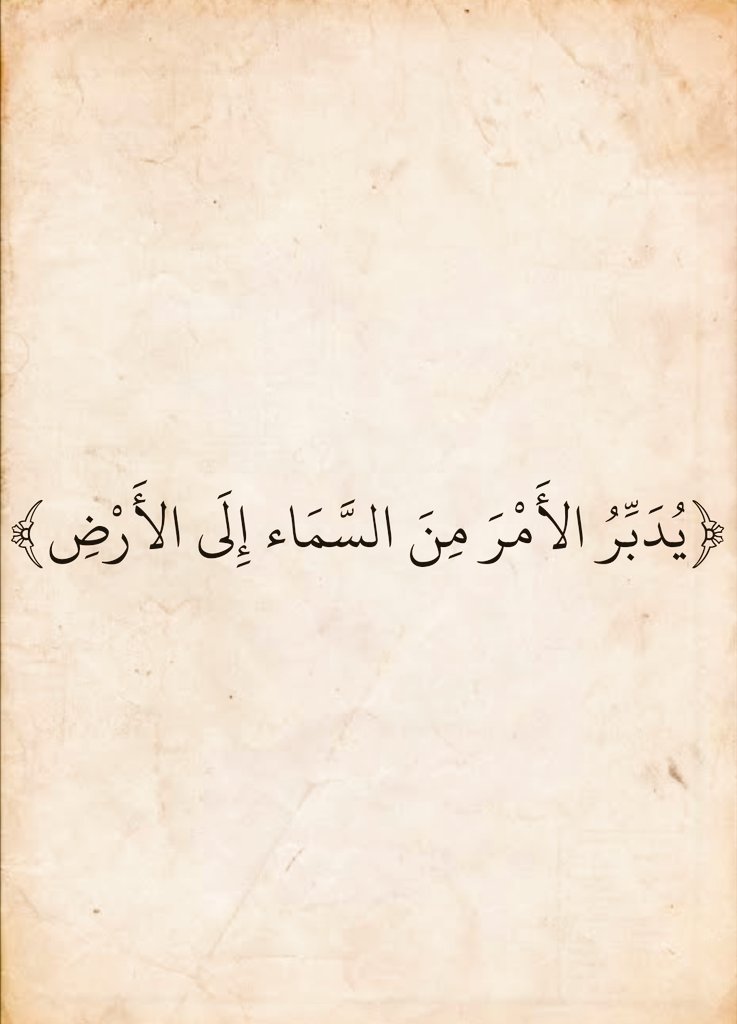 ﴿يُدَبِّرُ الأَمْرَ مِنَ السَّمَاء إِلَى الأَرْضِ﴾